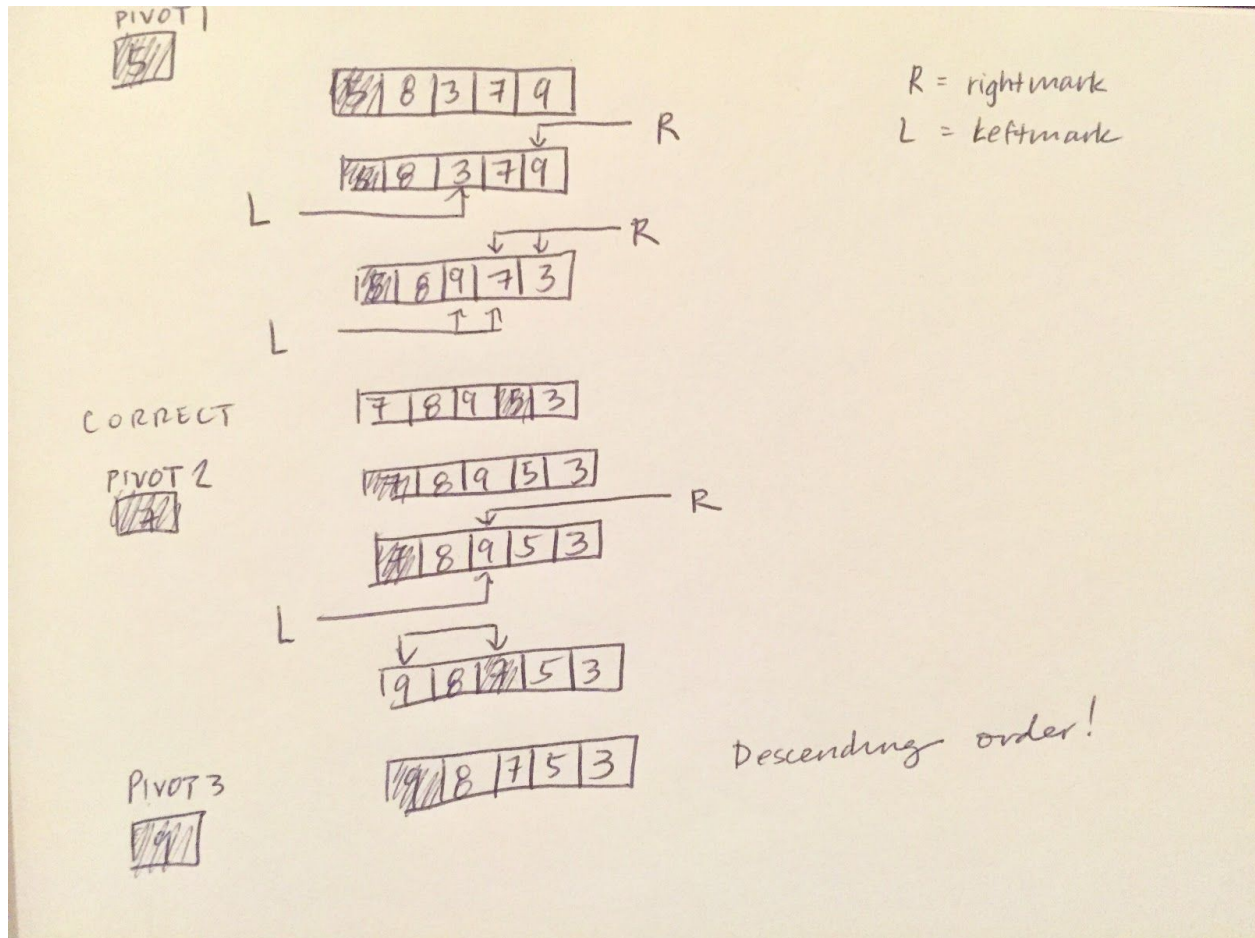 PIVOT 1
5
5 8 3 7 9
R = rightmark
L = Leftmark
R
5 8 3 7 9
L
R
5 8 9 7 3
L
CORRECT
7 8 9 5 3
PIVOT 2
7
7 8 9 5 3
R
7 8 9 5 3
L
9 8 7 5 3
Descending order!
PIVOT 3
9
9 8 7 5 3